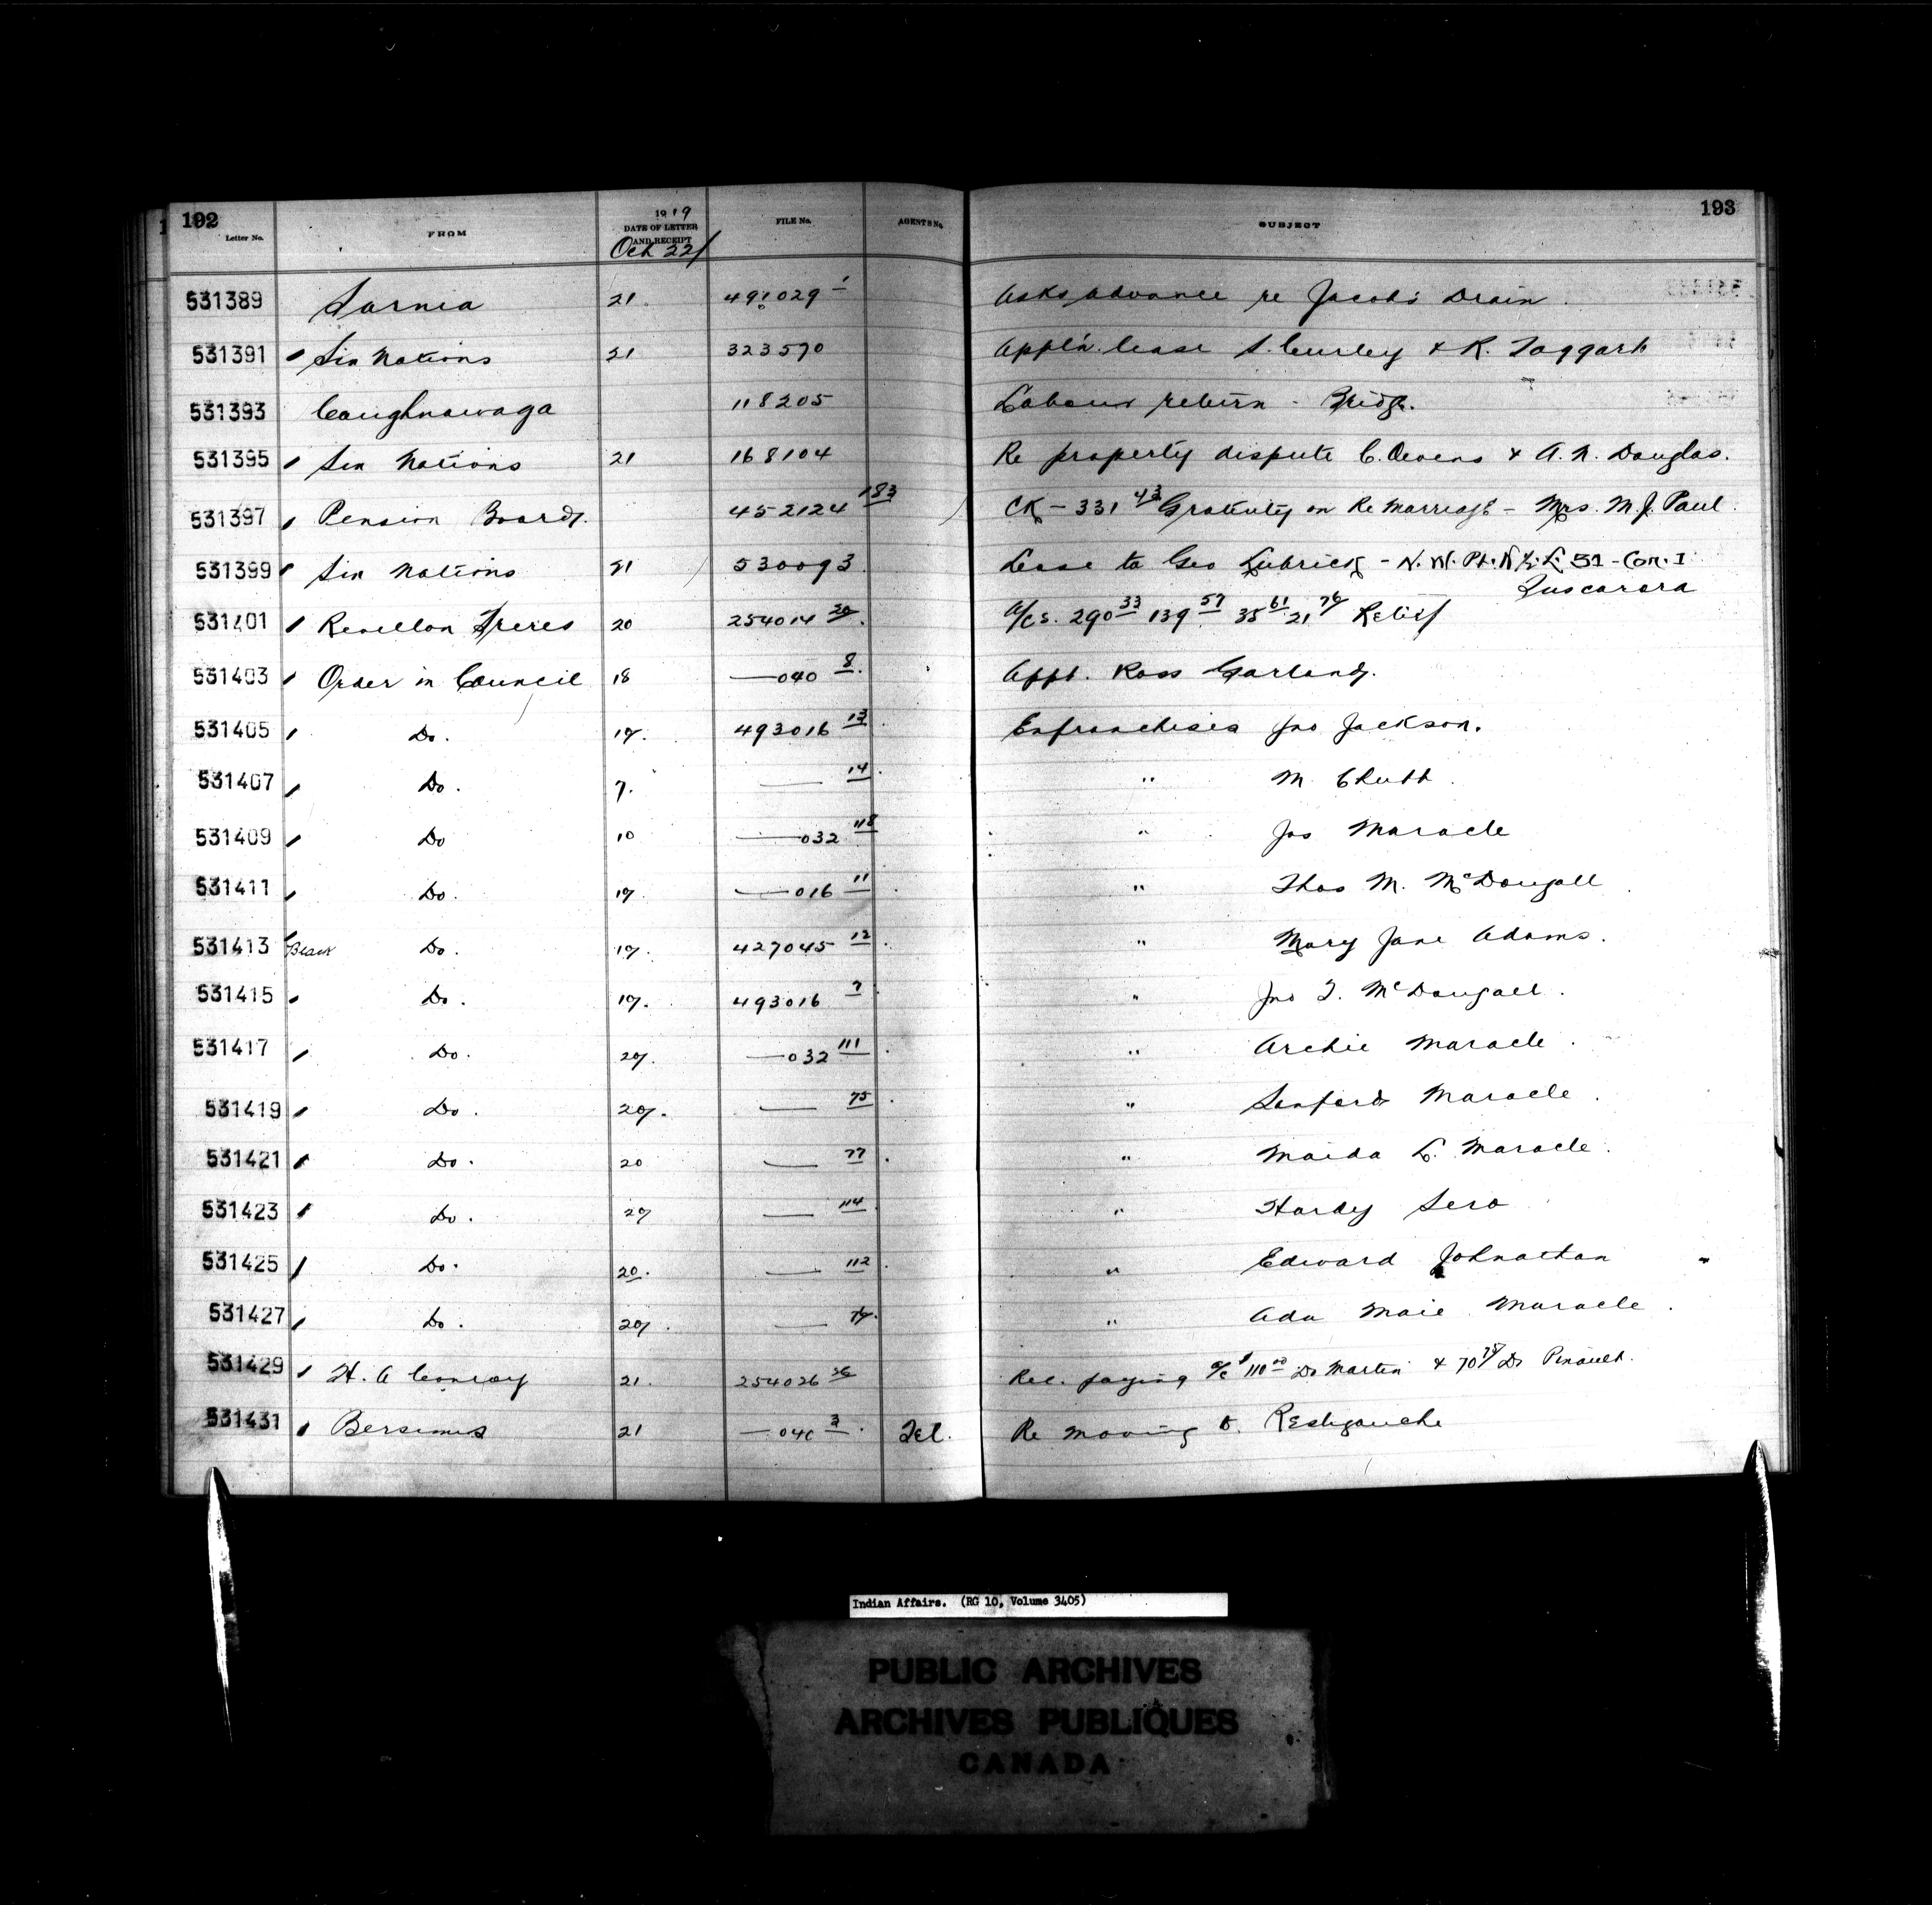 192
193
Letter No. FROM 1919 DATE OF LETTER AND RECEIPT FILE No. AGENTS No. SUBJECT
Oct 22/
531389 Sarnia 21. 491029 1 Asks advance re Jacobs Drain.
531391 Six Nations 21 323570 Appl'n. lease S. Curley & R. Taggart
531393 Caughnawaga 118205 Labour return - Bridge.
531395 Six Nations 21 168104 Re property dispute C. Owens & A. N. Douglas.
531397 Pension Board. 452124 183 CK - 331 43 Gratuity on Re Marriage - Mrs. M. J. Paul.
531399 Six Nations 21 530093 Lease to Geo Lubrick - N. W. Pt. N ½ L. 51 - Con. I
Tuscarora
531401 Revellon Freres 20 254014 20. A/cs. 290 33 139 57 35 61 21 76 Relief
531403 Order in Council 18 —040 8. Appt. Ross Garland.
531405 Do. 17. 493016 13. Enfranchises Jno Jackson.
531407 Do. 7. — 14. " M. Chubb.
531409 Do 10 —032 118 " Jos Maracle
531411 Do. 17. —016 11. " Thos M. McDougall.
531413 Black Do. 17. 427045 12. " Mary Jane Adams.
531415 Do. 17. 493016 7. " Jno T. McDougall.
531417 Do. 20. —032 111. " Archie Maracle.
531419 Do. 20. — 75. " Sanford Maracle.
531421 Do. 20 — 77. " Maida L. Maracle.
531423 Do. 20 — 114. " Hardy Sero
531425 Do. 20. — 112. " Edward Johnathan
531427 Do. 20. — " Ada Maie Maracle.
531429 H. A Conroy 21. 254026 26 Rec. paying a/c 110 00 Dr Martin & 70 Dr Pinault.
531431 Bersimis 21 —040 3. Tel. Re moving to Restigouche
Indian Affairs. (RG 10, Volume 3405)
PUBLIC ARCHIVES
ARCHIVES PUBLIQUES
CANADA